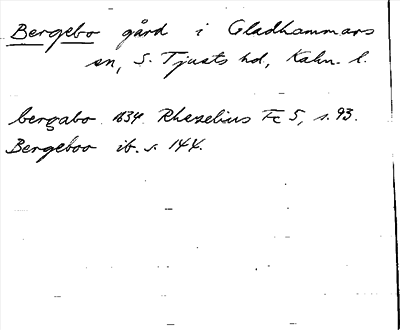 Bergebo gård i Gladhammars
sn, S. Tjusts hd, Kalm. l.
bergabo 1634 Rhezelius Fc 5, s. 93.
Bergeboo ib. s. 144.